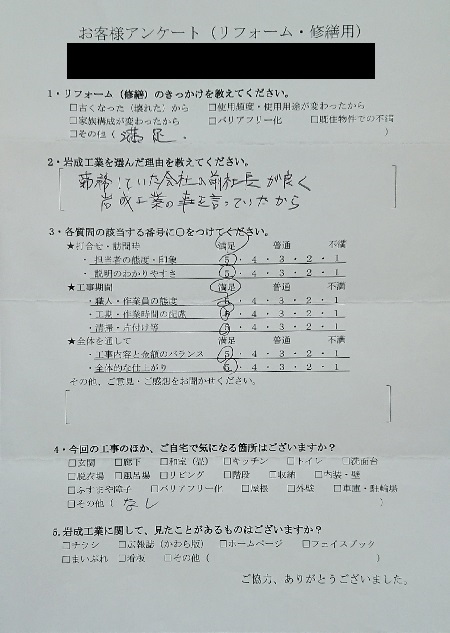 お客様アンケート（リフォーム・修繕用）
1・リフォーム（修繕）のきっかけを教えてください。
□古くなった（壊れた）から □使用頻度・使用用途が変わったから
□家族構成が変わったから □バリアフリー化 □既住物件での不満
□その他（ 満足．
2・岩成工業を選んだ理由を教えてください。
勤務していた会社の前社長が良く
岩成工業の事を言っていたから
3・各質問の該当する番号に○をつけてください。
★打合せ・訪問時 満足 普通 不満
・担当者の態度・印象 5・4・3・2・1
・説明のわかりやすさ 5・4・3・2・1
★工事期間 満足 普通 不満
・職人・作業員の態度 5・4・3・2・1
・工期・作業時間の配慮 5・4・3・2・1
・清掃・片付け等 5・4・3・2・1
★全体を通して 満足 普通 不満
・工事内容と金額のバランス 5・4・3・2・1
・全体的な仕上がり 5・4・3・2・1
その他、ご意見・ご感想をお聞かせください。
4・今回の工事のほか、ご自宅で気になる箇所はございますか？
□玄関 □廊下 □和室（畳） □キッチン □トイレ □洗面台
□脱衣場 □風呂場 □リビング □階段 □収納 □内装・壁
□ふすまや障子 □バリアフリー化 □屋根 □外壁 □車庫・駐輪場
□その他（ なし ）
5.岩成工業に関して、見たことがあるものはございますか？
□チラシ □広報誌（かわら版） □ホームページ □フェイスブック
□まいぷれ □看板 □その他（ ）
ご協力、ありがとうございました。